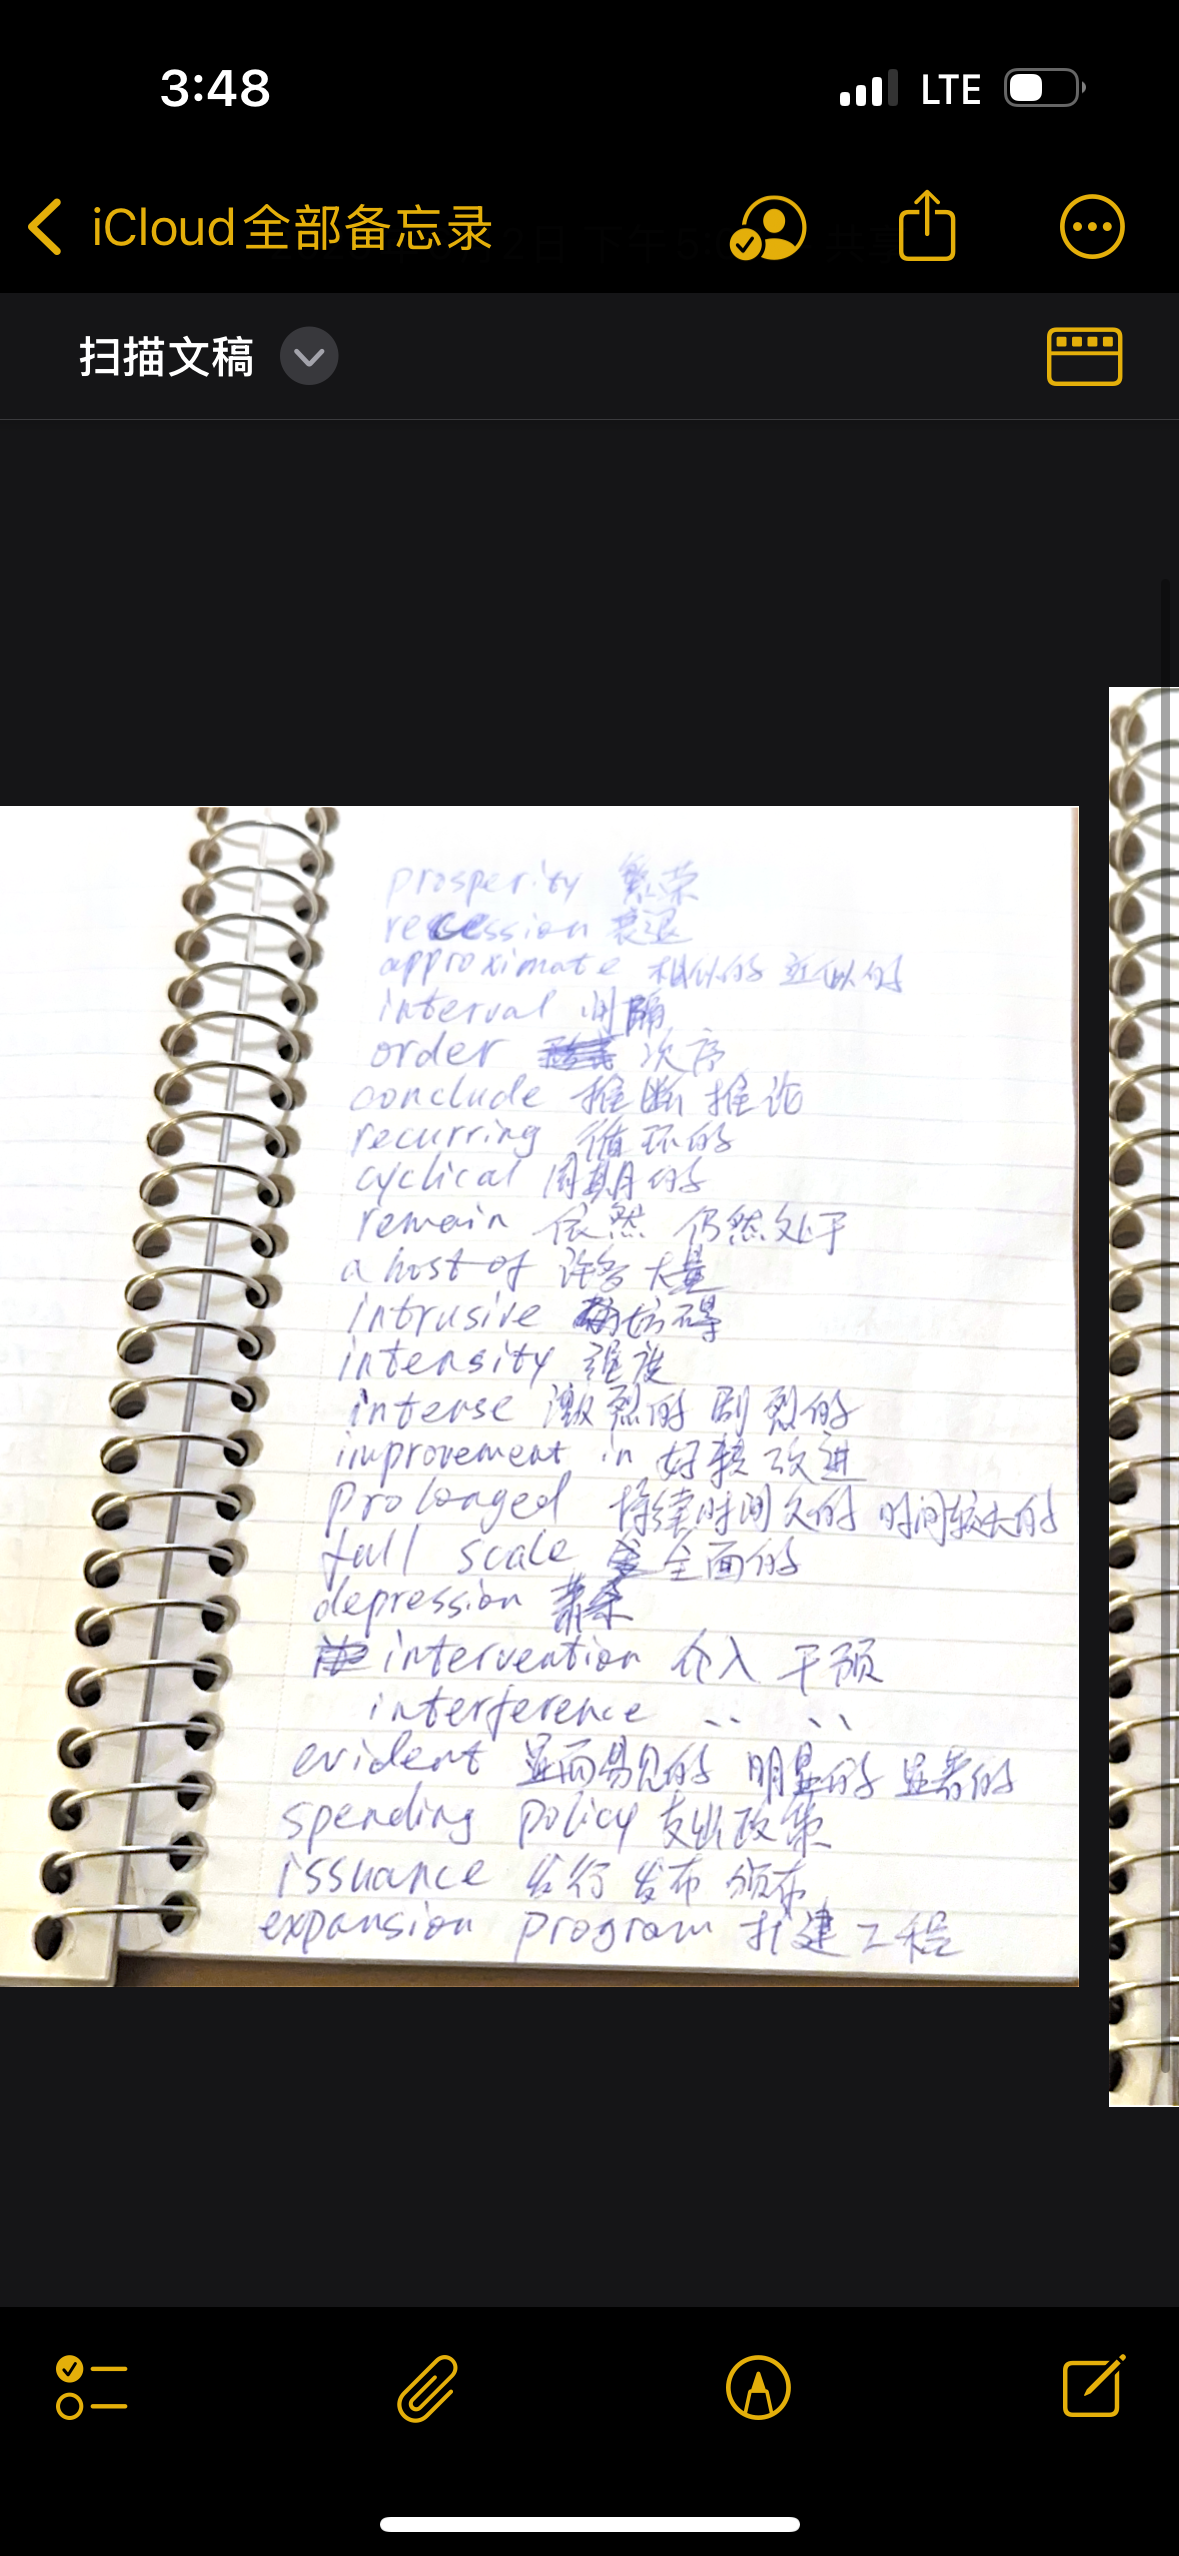 3:48 LTE
iCloud全部备忘录
扫描文稿
prosperity 繁荣
recession 衰退
approximate 相似的 近似的
interval 间隔
order 次序
conclude 推断 推论
recurring 循环的
cyclical 周期的
remain 依然 仍然处于
a host of 许多 大量
intrusive 妨碍
intensity 强度
intense 激烈的 剧烈的
improvement in 好转 改进
prolonged 持续时间久的 时间较长的
full scale 全面的
depression 萧条
intervention 介入 干预
interference 、、 、、
evident 显而易见的 明显的 显著的
spending policy 支出政策
issuance 发行 发布 颁布
expansion program 扩建工程